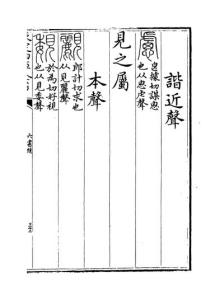 諧近聲
慮 良據切謀思
也从思虍聲
見之屬
本聲
郎計切求也
从見麗聲
於為切好視
也从見委聲
六書統